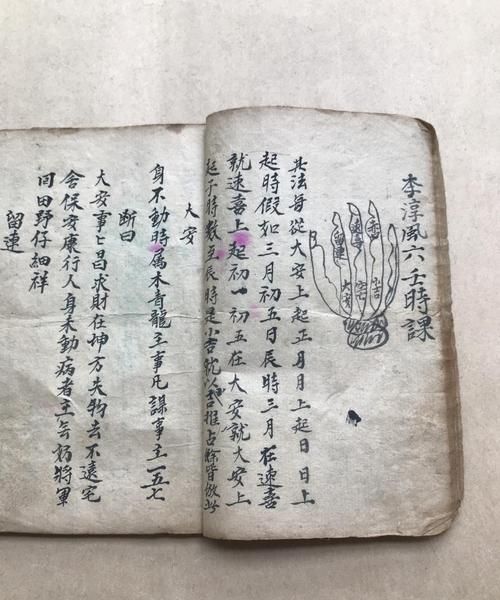 李淳風六壬時課
赤口
速喜
留連
小吉
空亡
大安
其法每從大安上起正月月上起日日上
起時假如三月初五日辰時三月在速喜
就速喜上起初一初五在大安就大安上
起子時数至辰時是小吉就以吉推占餘皆倣此
大安
身不動時属木青龍主事凡謀事主一五七
断曰
大安事匕昌求財在坤方失物去不遠宅
舍保安康行人身未動病者主無妨將軍
同田野仔細祥
留連